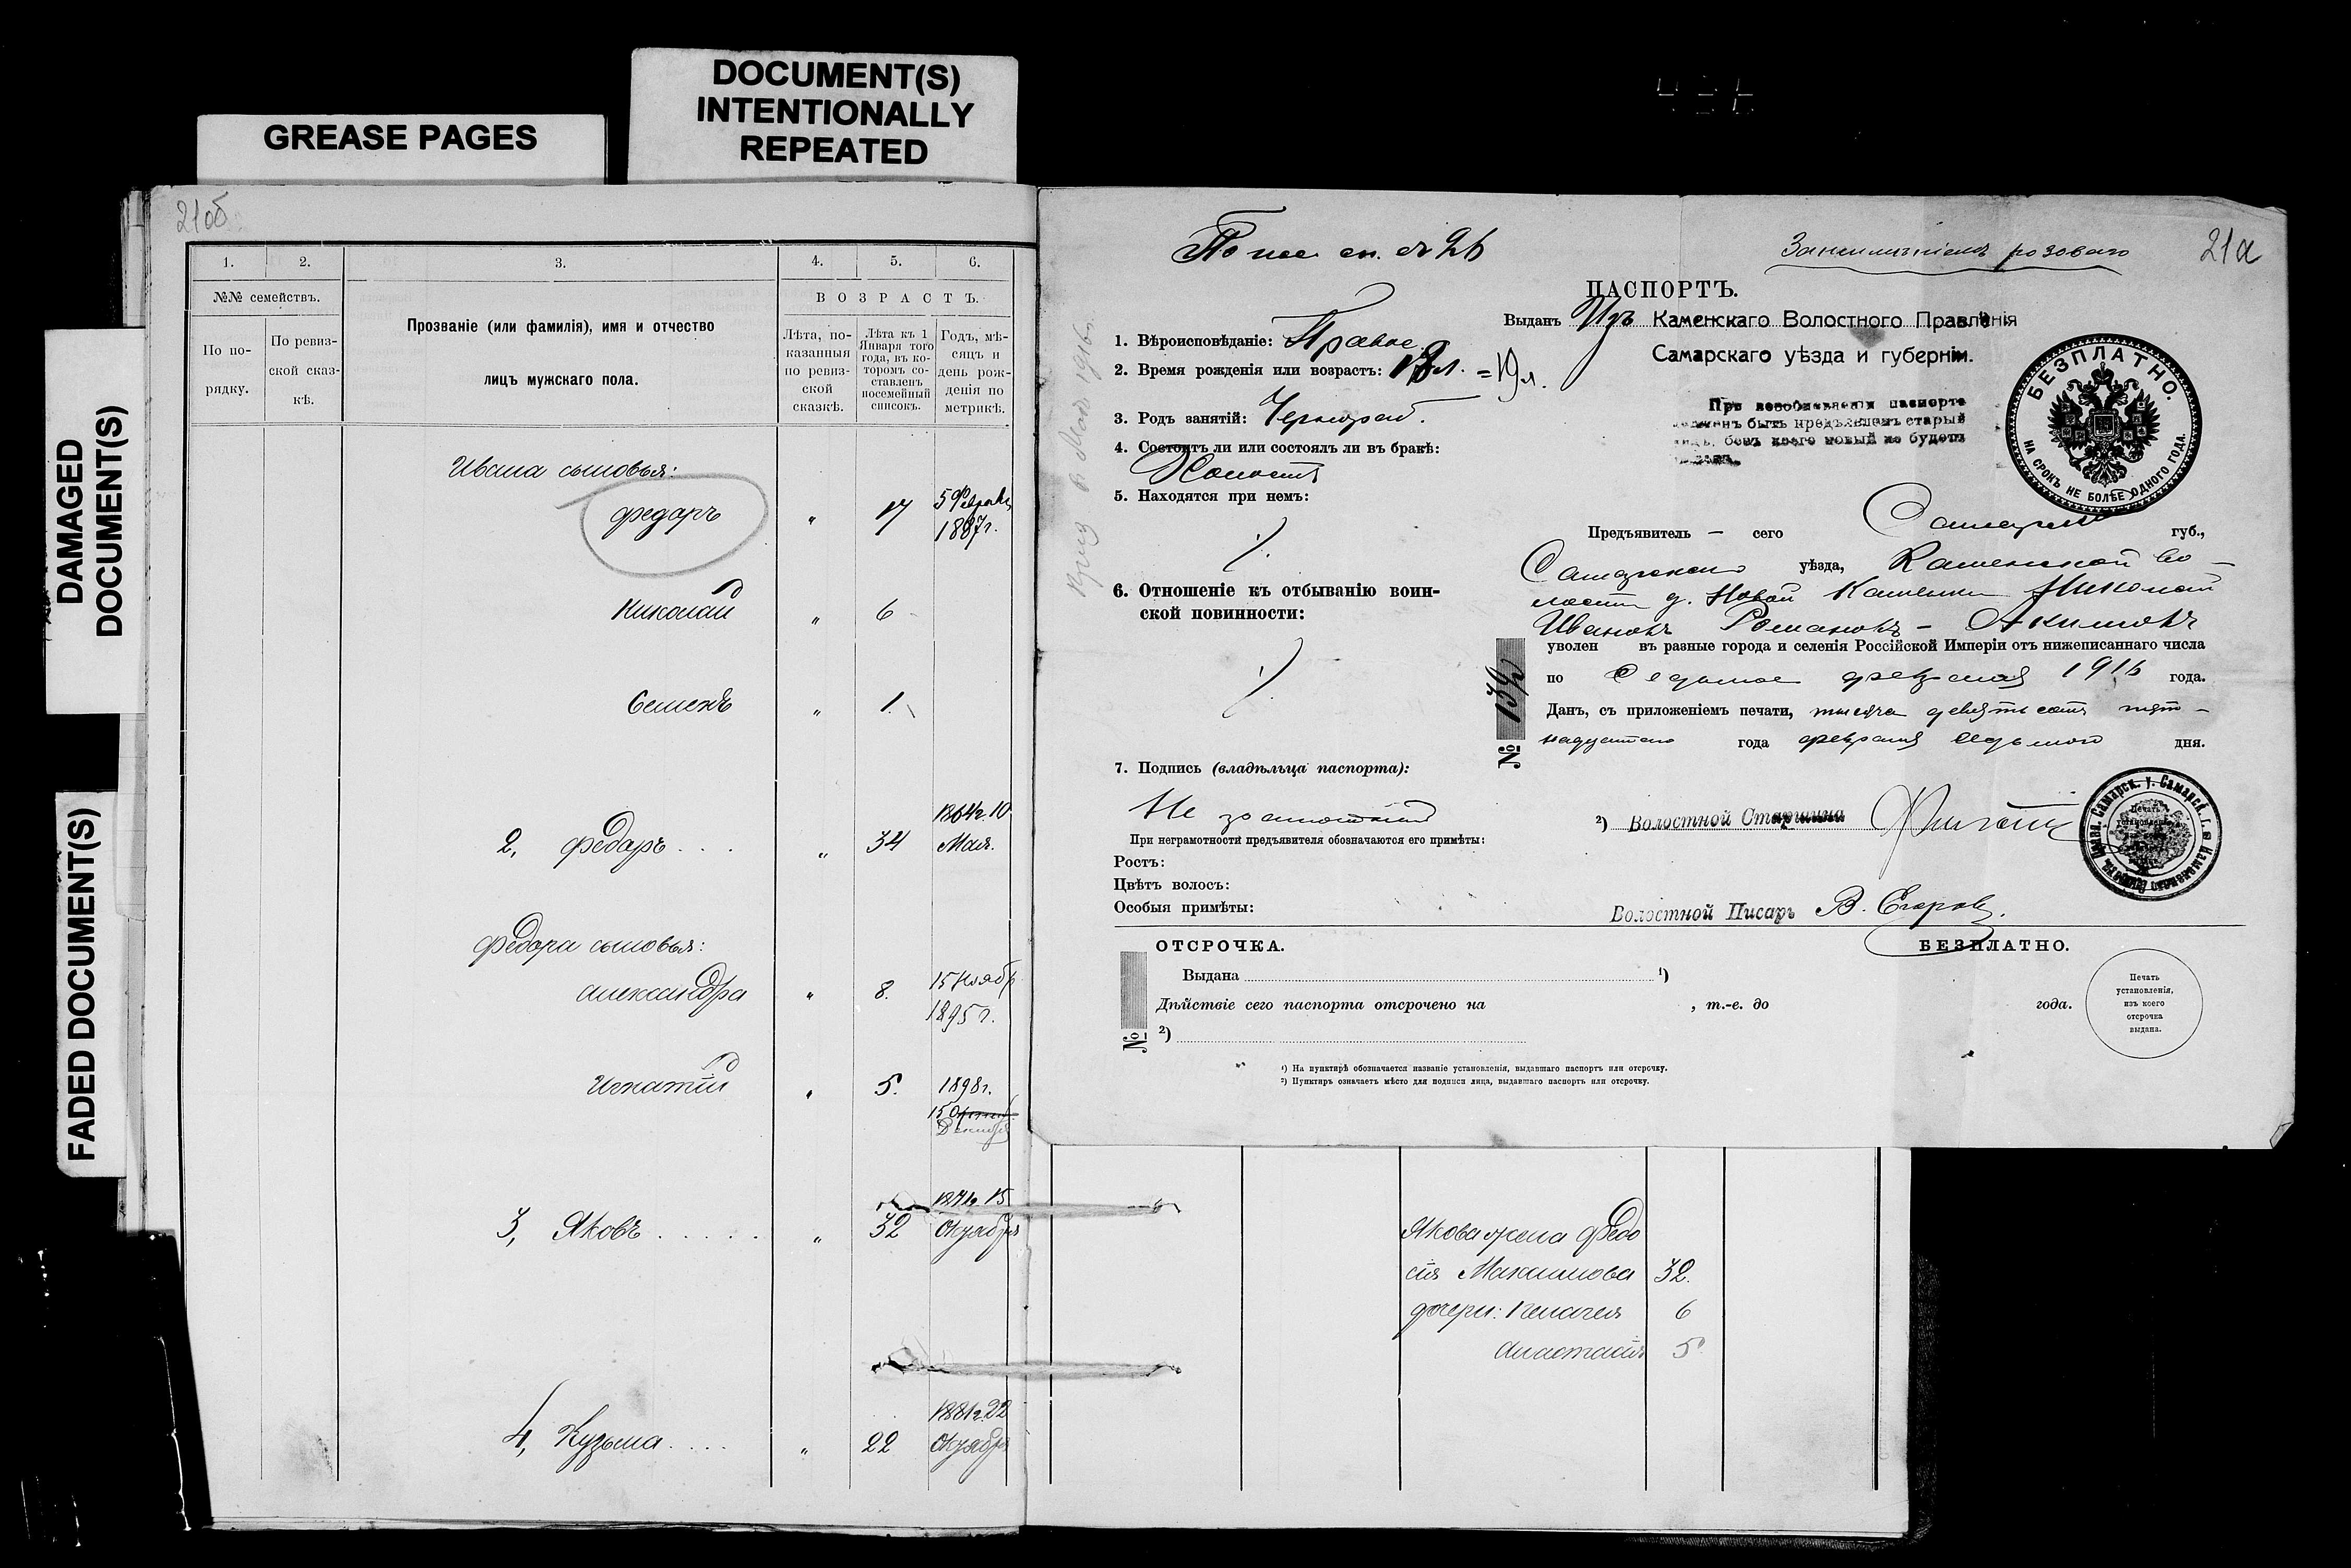 GREASE PAGES
DOCUMENT(S)
INTENTIONALLY
REPEATED
DAMAGED
DOCUMENT(S)
FADED DOCUMENT(S)
21об
1. 2. 3. 4. 5. 6.
№№ семействъ.
По по-
рядку.
По ревиз-
ской сказ-
кѣ.
Прозваніе (или фамилія), имя и отчество
лицъ мужскаго пола.
ВОЗРАСТЪ.
Лѣта, по-
казанныя
по ревиз-
ской
сказкѣ.
Лѣта къ 1
Января того
года, въ ко-
торомъ со-
ставленъ
посемейный
списокъ.
Годъ, мѣ-
сяцъ и
день рож-
денія по
метрикѣ.
Ивана сыновья:
Федоръ " 17 5 Февраля
1887г.
Николай " 6
Семенъ " 1.
1864г. 10
2, Федоръ . . . " 34 Мая.
Федора сыновья:
Александра " 8. 15 Ноябр
1895 г.
Игнатій " 5. 1898г.
15
Декабря
1871г. 15
3, Яковъ . . . . . " 32 Октября
1881г. 22
4, Кузьма . . . . " 22 Октября
21а
ПАСПОРТЪ.
Выданъ Изъ Каменскаго Волостного Правленія
Самарскаго уѣзда и губерніи.
При возобновленіи паспорта
долженъ быть предъявленъ старый
безъ коего новый не будетъ
БЕЗПЛАТНО.
НА СРОКЪ НЕ БОЛѢЕ ОДНОГО ГОДА.
1. Вѣроисповѣданіе: Правос.
2. Время рожденія или возрастъ: 18 л. = 19 л.
3. Родъ занятій: Чернораб.
4. Состоитъ ли или состоялъ ли въ бракѣ:
Холостъ
5. Находятся при немъ:
6. Отношеніе къ отбыванію воин-
ской повинности:
7. Подпись (владѣльца паспорта):
Не грамотный
При неграмотности предъявителя обозначаются его примѣты:
Ростъ:
Цвѣтъ волосъ:
Особыя примѣты:
Предъявитель — сего Самарской губ.,
Самарскаго уѣзда, Каменской во-
лости д. Новой Каменки Николай
Ивановъ Романовъ - Акимовъ
уволен въ разные города и селенія Россійской Имперіи отъ нижеписаннаго числа
по Седьмое февраля 1916 года.
Данъ, съ приложеніемъ печати, тысяча девятьсотъ пят-
надцатаго года февраля седьмого дня.
№ 132
2) Волостной Старшина
Волостной Писарь В. Егоровъ.
ОТСРОЧКА. БЕЗПЛАТНО.
Выдана 1)
Дѣйствіе сего паспорта отсрочено на , т.-е. до года.
№ 2)
Печать
установленія,
изъ коего
отсрочка
выдана.
1) На пунктирѣ обозначается названіе установленія, выдавшаго паспортъ или отсрочку.
2) Пунктиръ означаетъ мѣсто для подписи лица, выдавшаго паспортъ или отсрочку.
Якова жена Федо
сія Максимова 32.
дочери: Пелагея 6
Анастасія 5